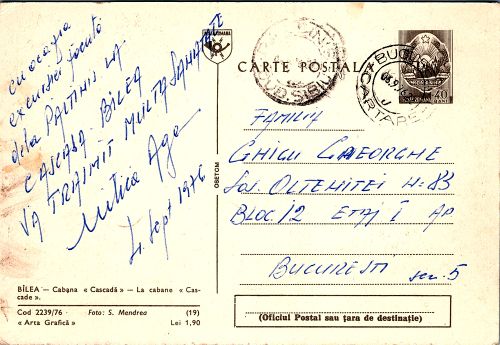 Cu ocazia
excursiei făcută
dela PALTINIS LA
CASCADA BÎLEA
VĂ TRAIMIT MULTĂ SANATATE
Mitica Aga
Sept 1976
CARTE POSTALA
40
FAMILIA
GHIGU GHEORGHE
Sos. OLTENITEI N=83
BLOC 12 ETAJ I AP
BUCURESTI
sec. 5
OBETCM
BÎLEA — Cabana « Cascadă » — La cabane « Cas-
cade ».
Cod 2239/76 Foto: S. Mendrea (19)
« Arta Grafică » Lei 1,90
(Oficiul Postal sau țara de destinație)